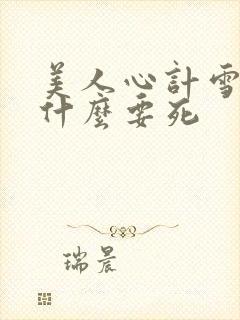 美人心計雪
什麼要死
瑞晨